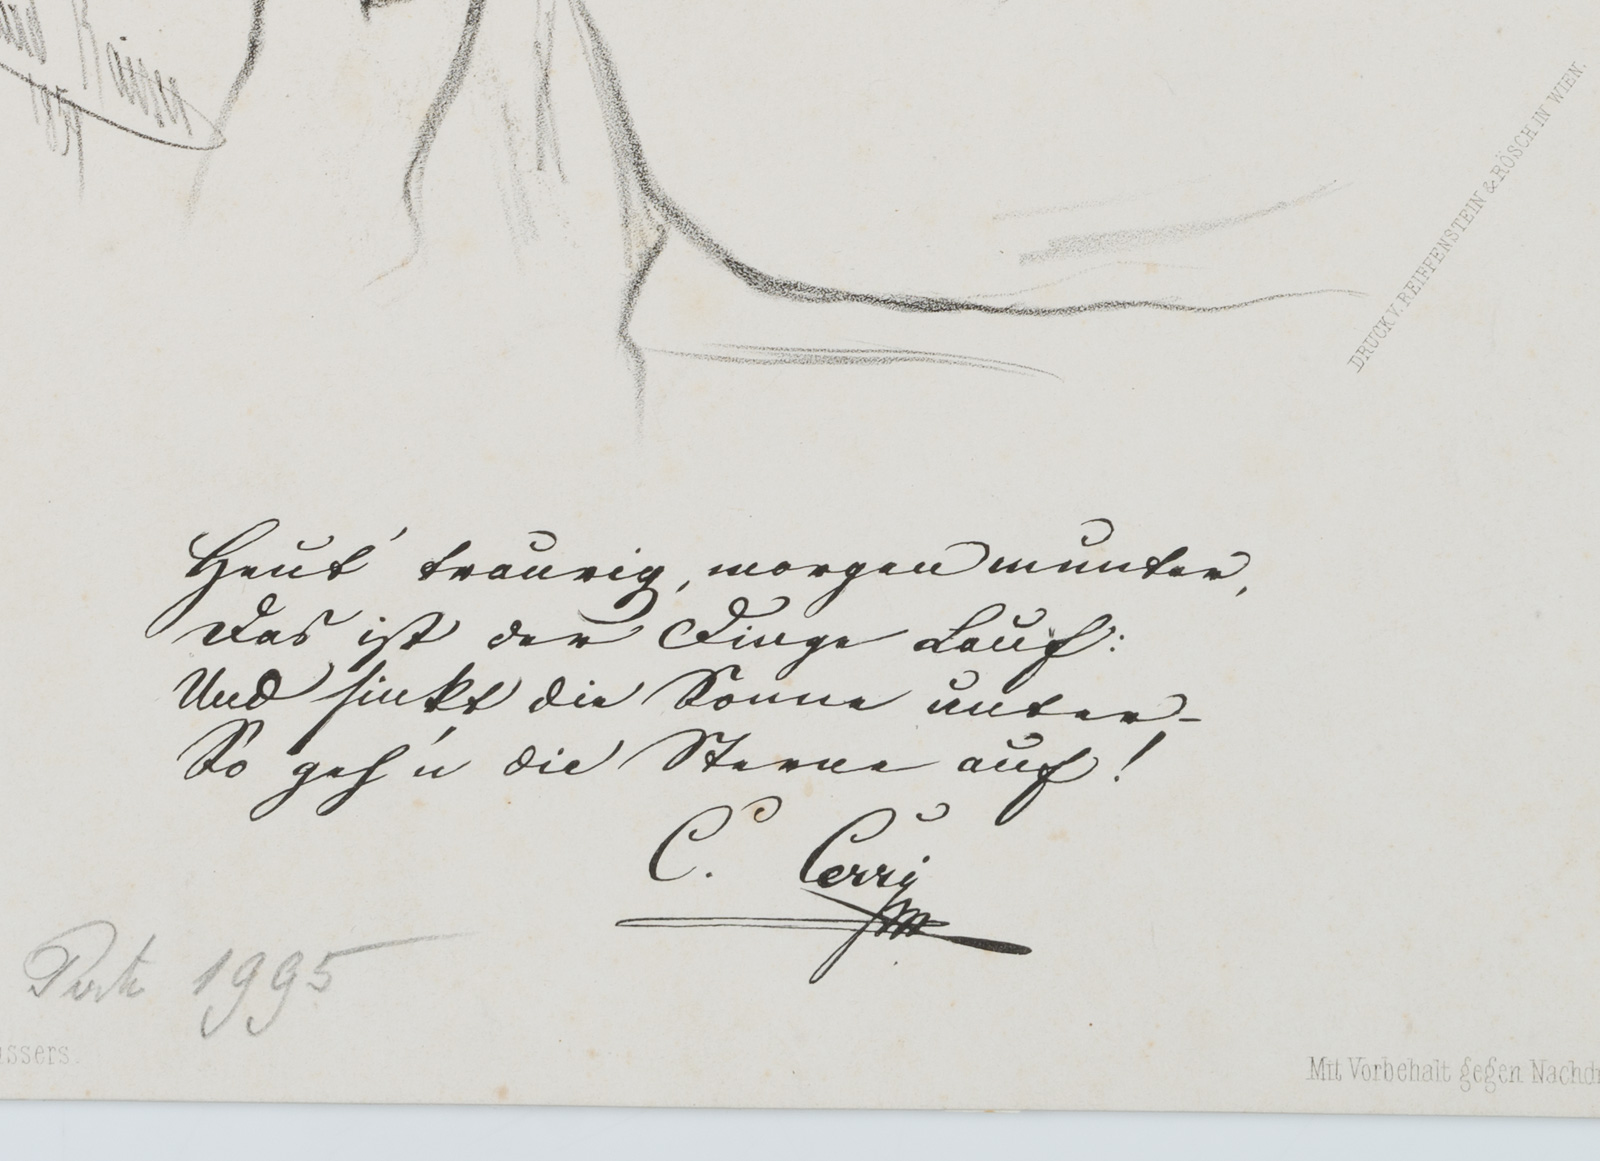 1859
DRUCK V. REIFFENSTEIN & RÖSCH IN WIEN.
Heut' traurig, morgen munter,
Das ist der Dinge Lauf:
Und sinkt die Sonne unter-
So geh'n die Sterne auf!
C. Cerri
1995
ssers.
Mit Vorbehalt gegen Nachd